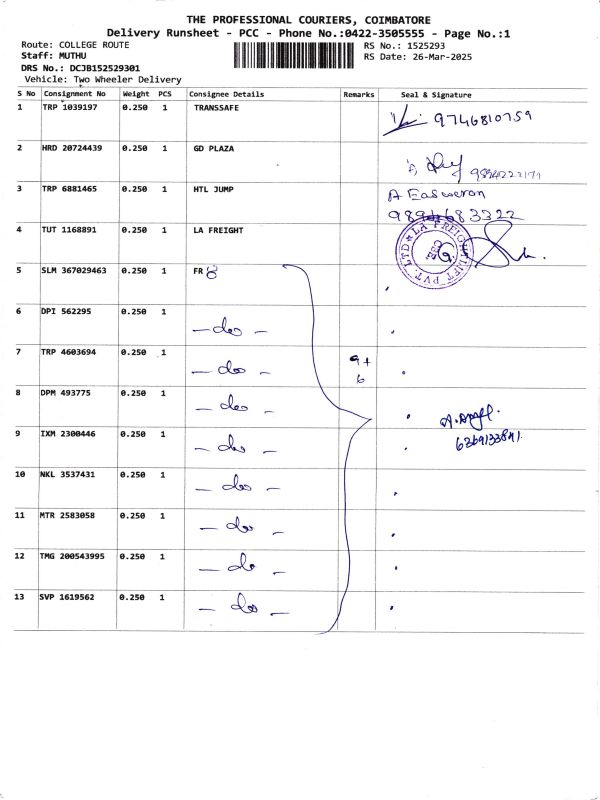 THE PROFESSIONAL COURIERS, COIMBATORE
Delivery Runsheet - PCC - Phone No.:0422-3505555 - Page No.:1
Route: COLLEGE ROUTE RS No.: 1525293
Staff: MUTHU RS Date: 26-Mar-2025
DRS No.: DCJB152529301
Vehicle: Two Wheeler Delivery
S No Consignment No Weight PCS Consignee Details Remarks Seal & Signature
1 TRP 1039197 0.250 1 TRANSSAFE 9746810759
2 HRD 20724439 0.250 1 GD PLAZA
3 TRP 6881465 0.250 1 HTL JUMP A Easweran
9894683322
4 TUT 1168891 0.250 1 LA FREIGHT
5 SLM 367029463 0.250 1 FR8
6 DPI 562295 0.250 1 - do -
7 TRP 4603694 0.250 1 - do - 9+
6
8 DPM 493775 0.250 1 - do -
9 IXM 2300446 0.250 1 - do - 6369133841
10 NKL 3537431 0.250 1 - do -
11 MTR 2583058 0.250 1 - do -
12 TMG 200543995 0.250 1 - do -
13 SVP 1619562 0.250 1 - do -